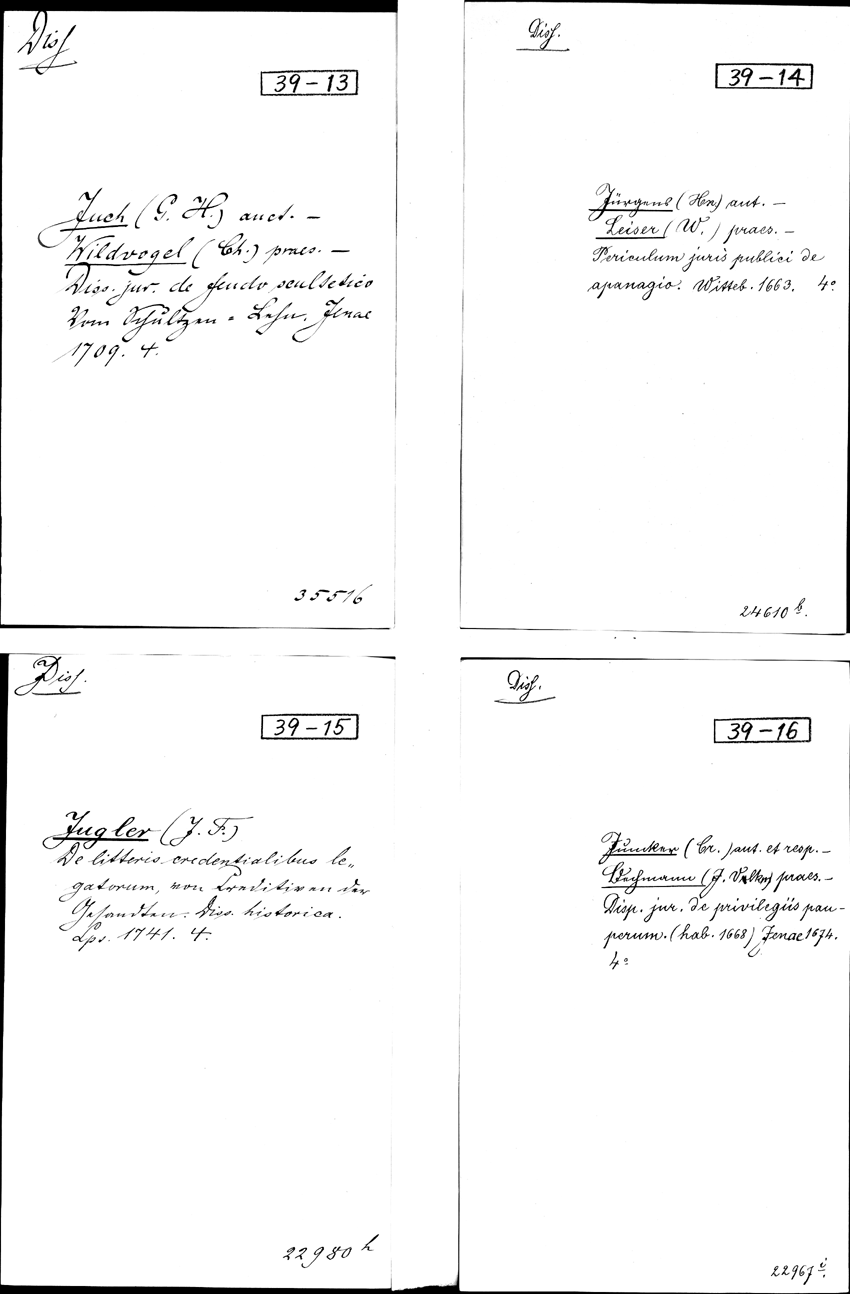 Diss
39-13
Juch (G. H.) auct. —
Wildvogel (Ch.) praes. —
Diss. jur. de feudo scultetico
Vom Schultzen-Lehn. Jenae
1709. 4.
35516
Diss.
39-14
Jürgens (Hn) aut. —
Leiser (W.) praes. —
Periculum juris publici de
apanagio. Witteb. 1663. 4°
24610 b.
Diss.
39-15
Jugler (J. F.)
De litteris credentialibus le-
gatorum, von Creditiven der
Gesandten. Diss. historica.
Lps. 1741. 4.
22980 h
Diss.
39-16
Juncker (Cr.) aut. et resp. —
Bechmann (J. Volkm) praes. —
Disp. jur. de privilegiis pau-
perum. (hab. 1668) Jenae 1674.
4°
22967 i.